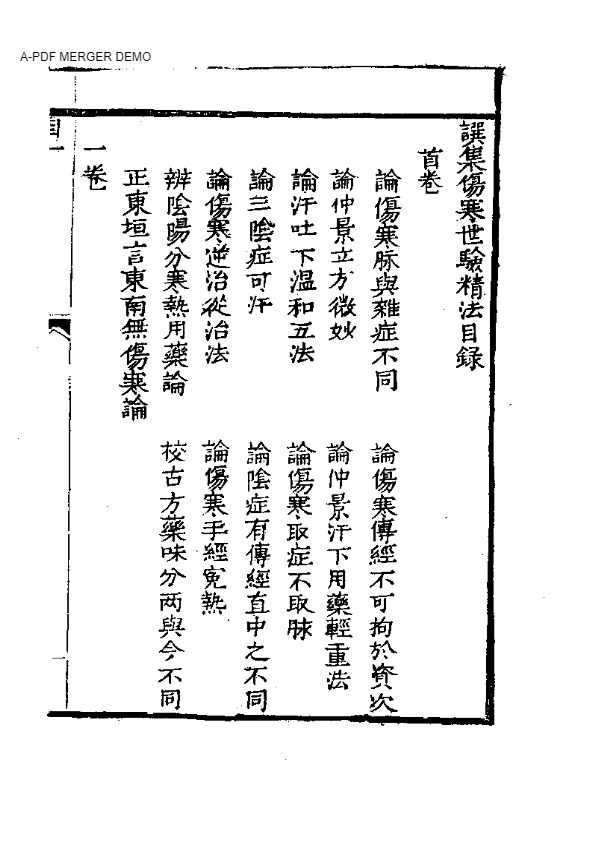 A-PDF MERGER DEMO
譔集傷寒世驗精法目録
首卷
論傷寒脉與雜症不同
論傷寒傳經不可拘於資次
論仲景立方微妙
論仲景汗下用藥輕重法
論汗吐下溫和五法
論傷寒取症不取脉
論三陰症可汗
論陰症有傳經直中之不同
論傷寒逆治從治法
論傷寒手經冤熱
辨陰陽分寒熱用藥論
校古方藥味分两與今不同
正東垣言東南無傷寒論
一卷
一